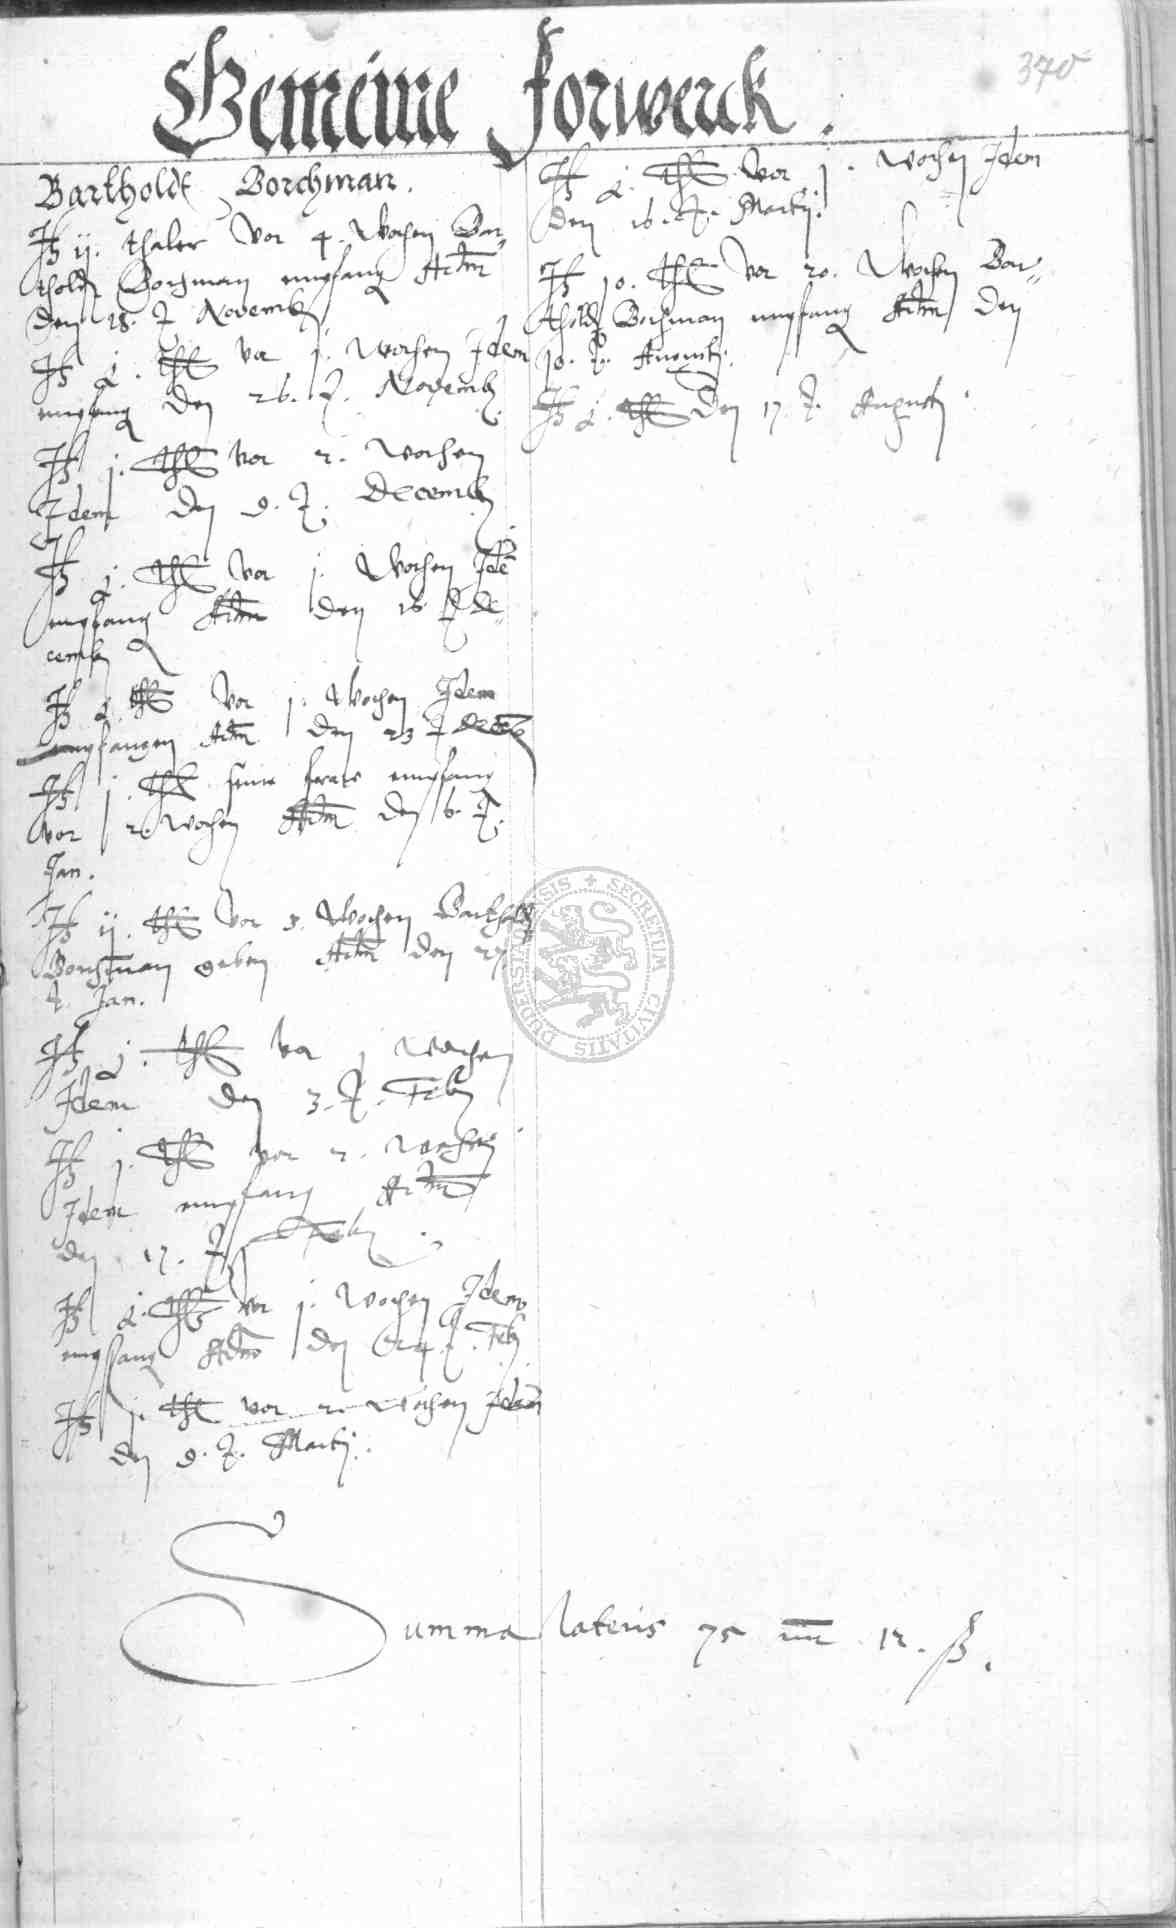 370
Gemeine Forwerck.
Bartholdt Borchman.
It ij. thaler vor 4. Wochen Bar„
tholdt Borgman empfang Actum
den 18. 9 Novemb
It thl vor j. Wochen Idem
empfang den 26. Novemb
It j. thl vor 2. Wochen
Idem den 9. Decemb
It thl vor j. Wochen Idē
empfang Actum den 16 De„
cemb
It thl vor j. Wochen Idem
empfangen Actum den 23 Decē
It j. thl seine fraw empfang
vor 2. Wochen Actum den 6.
Jan.
It ij. thl vor 3. Wochen Bartholdt
Borchman geben Actum den 27
Jan.
It thl vor j Wochen
Idem den 3. Feb
It j. thl vor 2. Wochen
Idem empfang Actum
den 17. Feb
It thl vor j. Wochen Idem
empfang Actum den 24. Feb
It j. thl vor 2. Wochen Idem
den 9. Martij.
It thl vor j. Wochen Idem
den 16. Martij.
It 10. thl vor 20. Wochen Bar„
tholdt Borchman empfang Actum den
10. Augusti.
It thl den 17. Augusti
Summa lateris 75 mr 12. ß.
SECRETUM CIVITATIS DUDERSTADENSIS